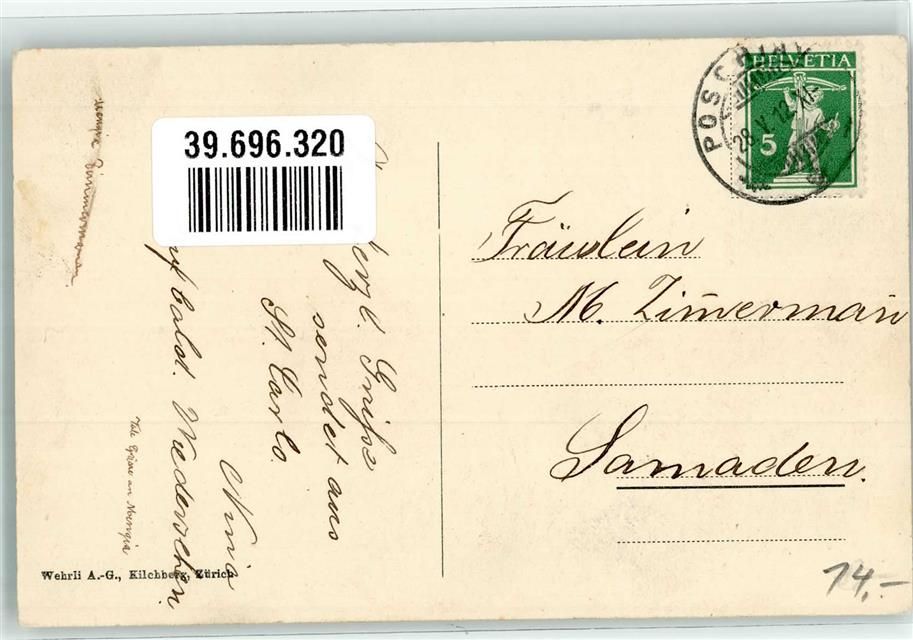 39.696.320
Herzl. Grüsse
sendet aus
St. Carlo.
Nina
auf bald. Wiedersehen.
Viele Grüsse an
Zimmermann
Wehrli A.-G., Kilchberg, Zürich
HELVETIA
5
POSCHIAVO
28.V.12.XI-
Fräulein
M. Zimerman̄
Samaden.
14,-